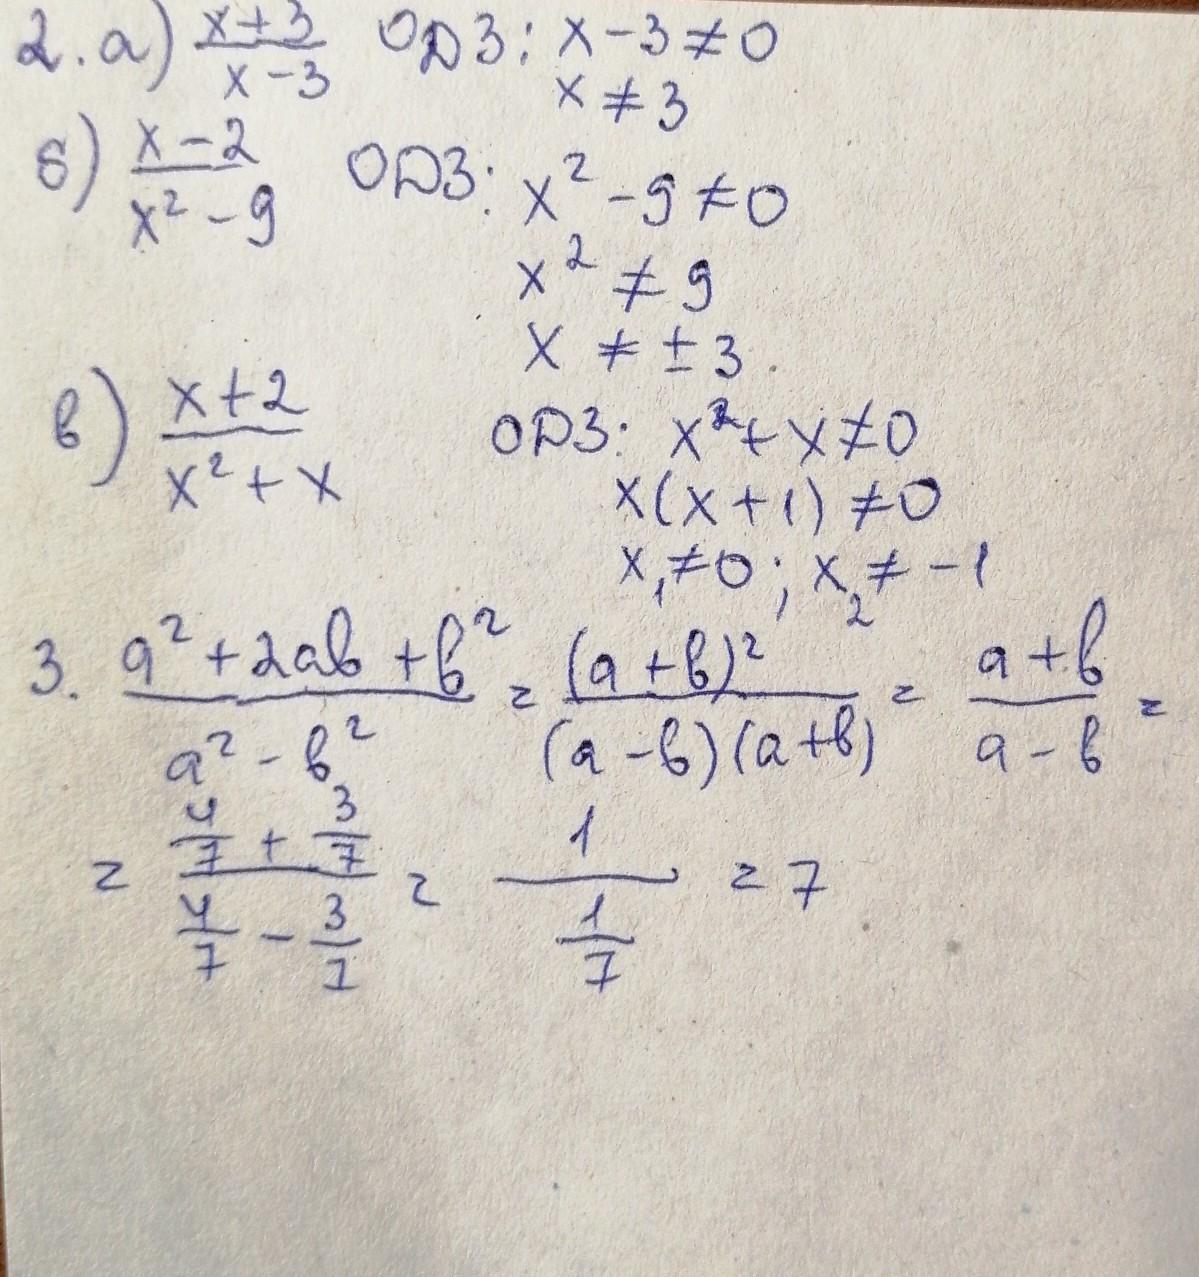 2. а) (x+3)/(x-3) ОДЗ: x-3≠0
x≠3
б) (x-2)/(x²-9) ОДЗ: x²-9≠0
x²≠9
x≠±3.
в) (x+2)/(x²+x) ОДЗ: x²+x≠0
x(x+1)≠0
x₁≠0; x₂≠-1
3. (a²+2ab+b²)/(a²-b²) = (a+b)²/((a-b)(a+b)) = (a+b)/(a-b) =
= (4/7+3/7)/(4/7-3/7) = 1/(1/7) = 7